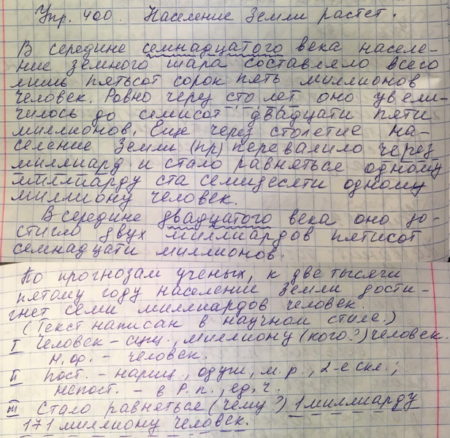 Упр. 400. Население Земли растет.
В середине семнадцатого века населе-
ние земного шара составляло всего
лишь пятьсот сорок пять миллионов
человек. Ровно через сто лет оно увели-
чилось до семисот двадцати пяти
миллионов. Еще через столетие на-
селение Земли (пр) перевалило через
миллиард и стало равняться одному
миллиарду ста семидесяти одному
миллиону человек.
В середине двадцатого века оно до-
стигло двух миллиардов пятисот
семнадцати миллионов.
По прогнозам ученых, к две тысячи
пятому году население Земли дости-
гнет семи миллиардов человек.
(Текст написан в научном стиле.)
I Человек - сущ., миллиону (кого?) человек.
н.ф. - человек.
II пост. - нариц., одуш., м.р., 2-е скл.;
непост. - в Р.п., ед.ч.
III Стало равняться (чему?) 1 миллиарду
171 миллиону человек.